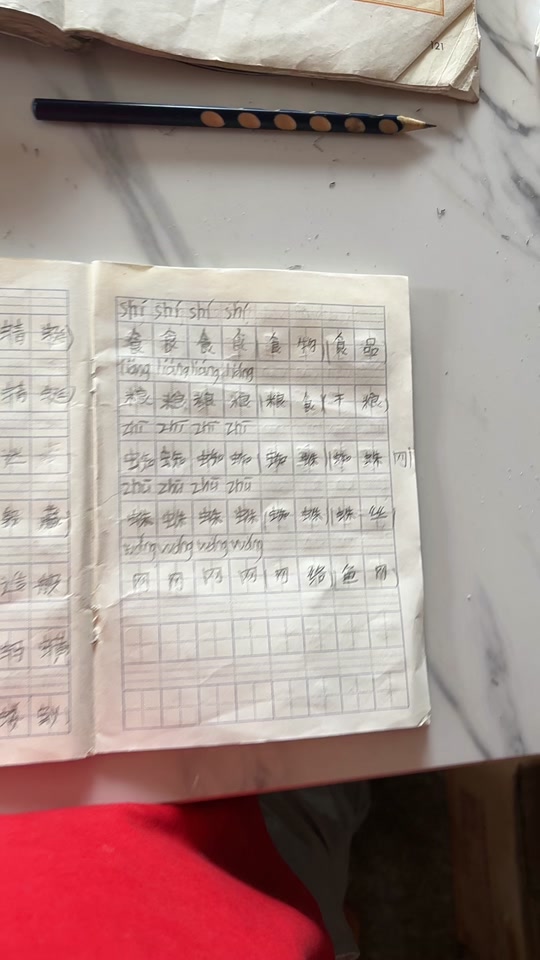 121
shí shí shí shí
食 食 食 食 ( 食 物 ) ( 食 品
liáng liáng liáng liáng
粮 粮 粮 粮 ( 粮 食 ) ( 干 粮 )
zhī zhī zhī zhī
蜘 蜘 蜘 蜘 ( 蜘 蛛 ) ( 蜘 蛛 网 )
zhū zhū zhū zhū
蛛 蛛 蛛 蛛 ( 蜘 蛛 ) ( 蛛 丝 )
wǎng wǎng wǎng wǎng
网 网 网 网 ( 网 络 ) ( 鱼 网 )